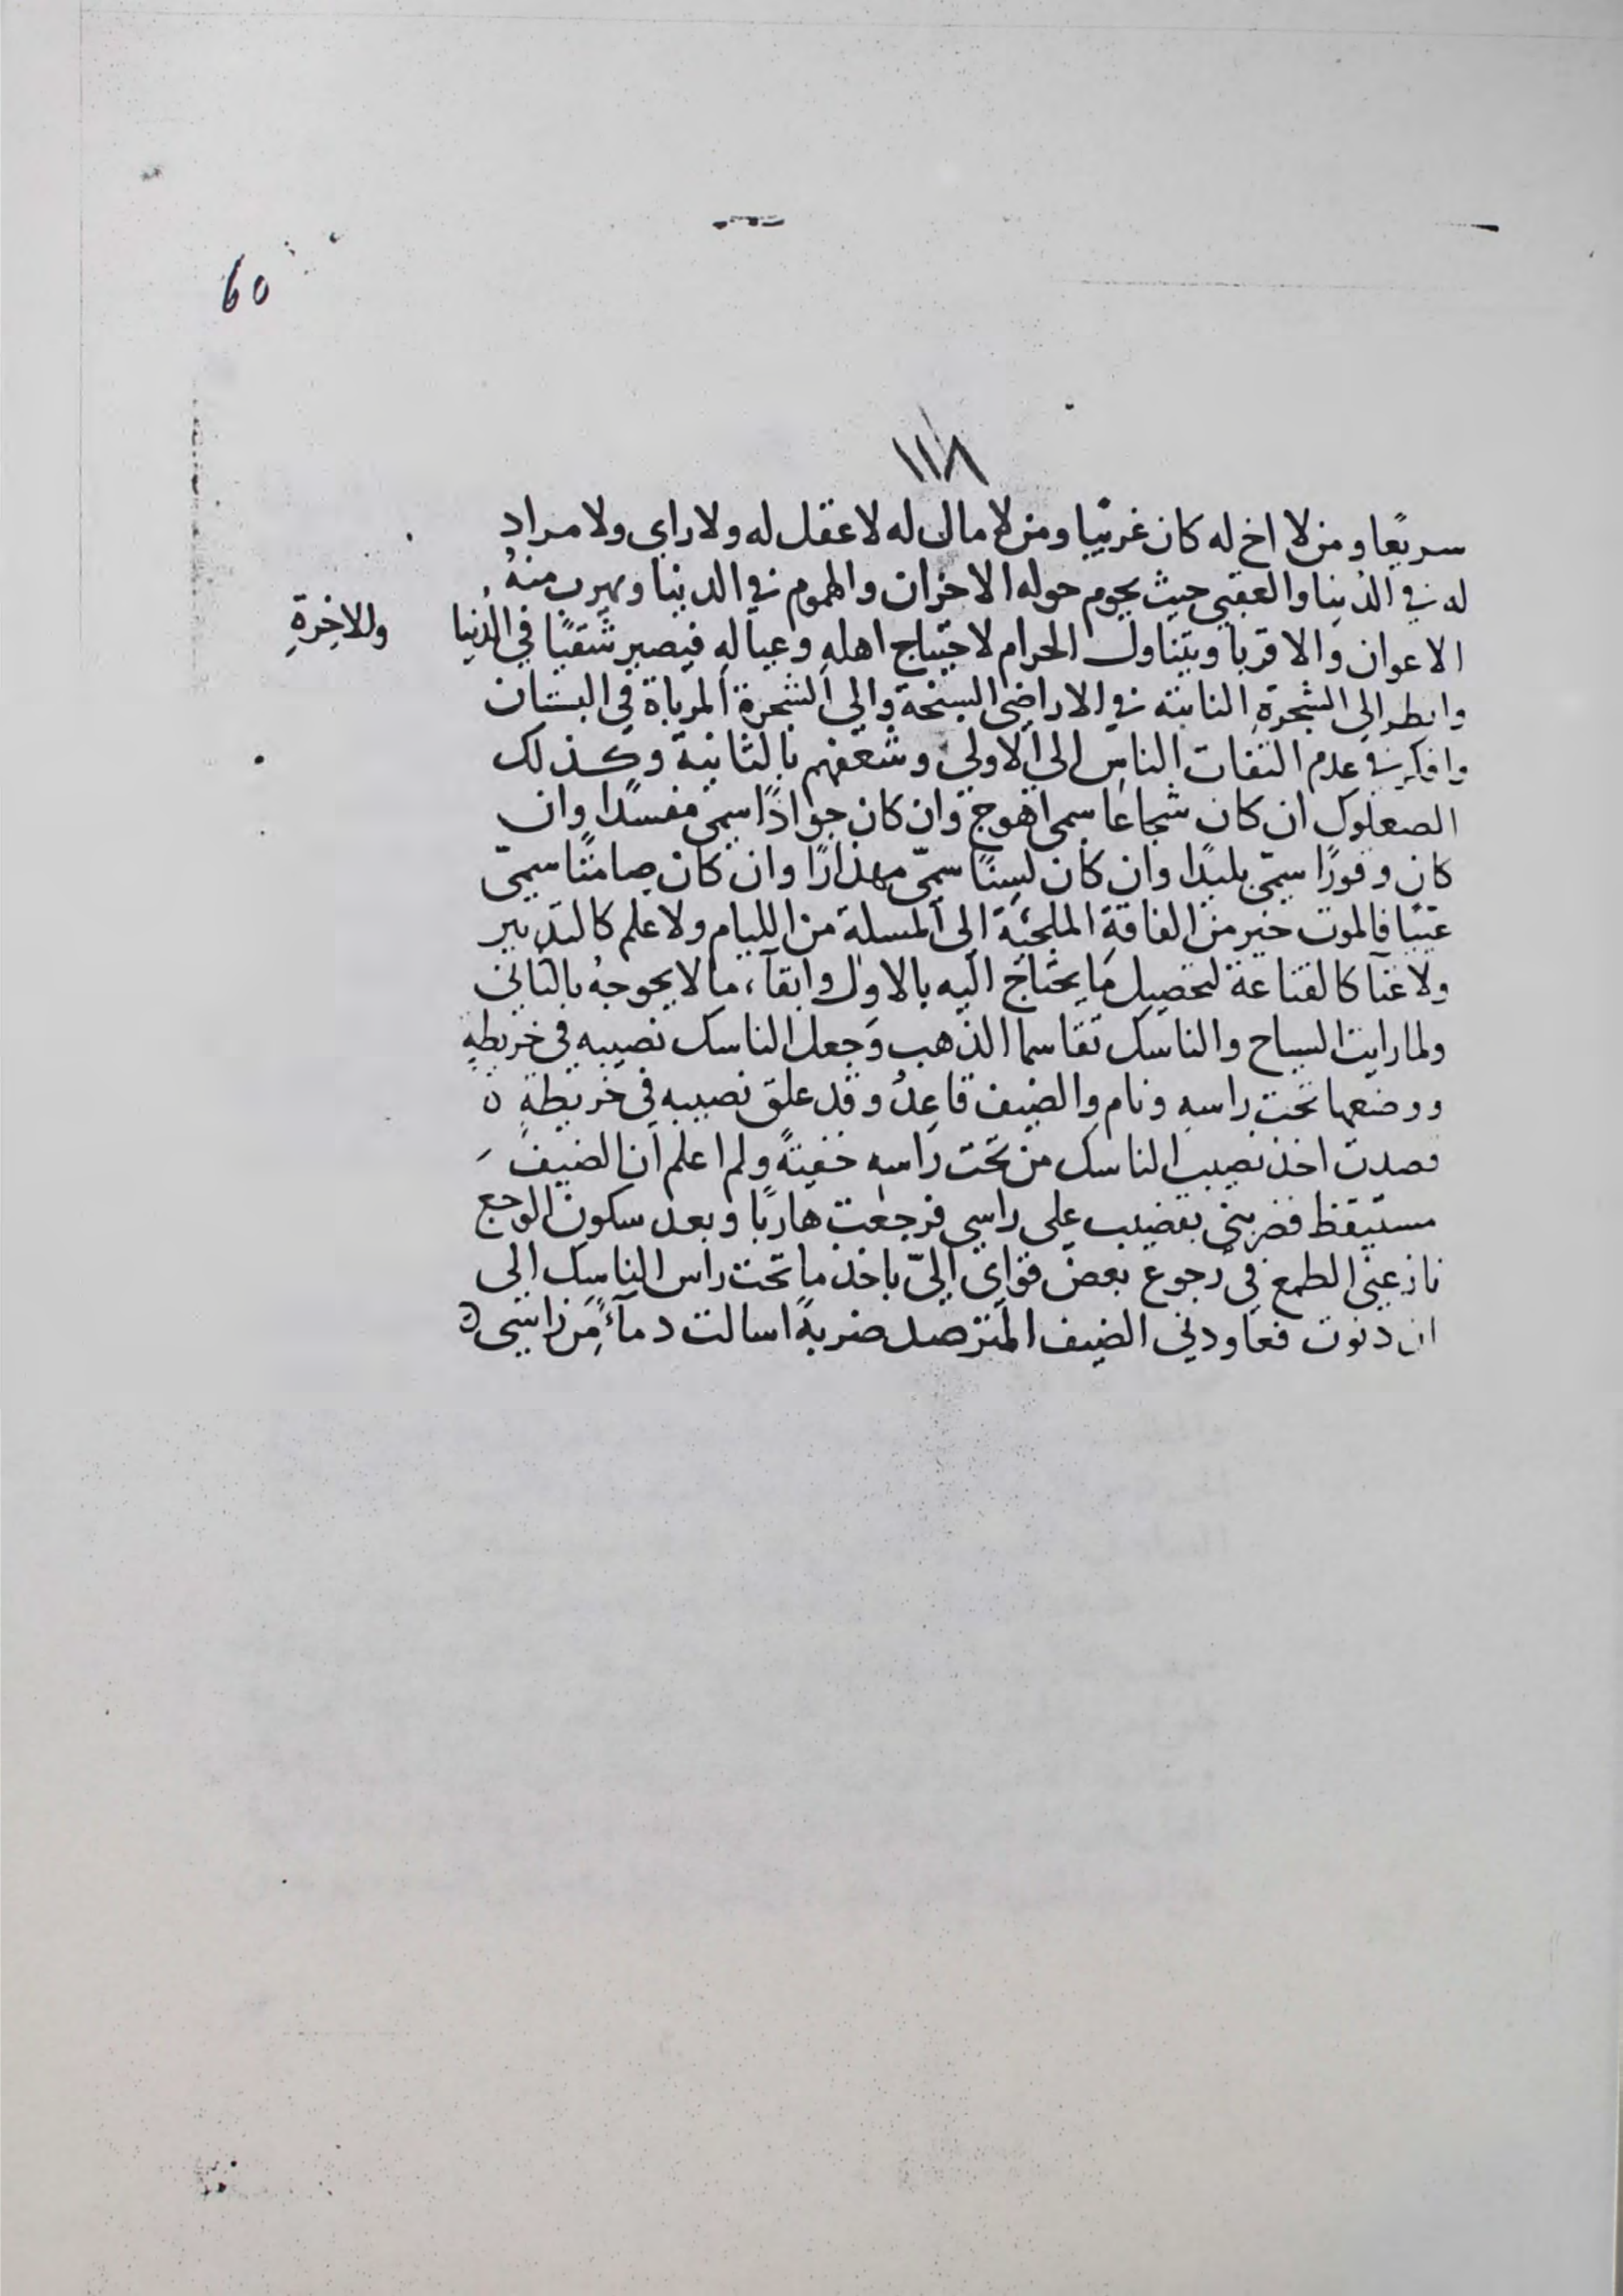 60
١١٨
سريعًا ومن لا اخ له كان غريبًا ومن لا مال له لا عقل له ولا راى ولا مراد
له في الدنيا والعقبى حيث يحوم حوله الاحزان والهموم في الدنيا ويهرب منهُ
الاعوان والاقربا ويتناول الحرام لاحتياج اهلهِ وعيالهِ فيصير شقيًا في الدُنيا والاخِرةِ
وانظر الى الشجرةِ النابتة في الاراضى السبخة والى الشجرة المرباة في البستان
وافكر في عدم التفات الناس الى الاولى وشغفهم بالثانية وكذلك
الصعلوك ان كان شجاعًا سمى اهوج وان كان جوادًا سمى مفسدًا وان
كان وقورًا سمّى بليدًا وان كان لسِنًا سمّى مهذارًا وان كان صامتًا سمّى
عييًا فالموت خير من الفاقةِ الملجئة الى المسلة من الليام ولا علم كالتدبير
ولا غنآ كالقناعة لتحصيل ما يحتاج اليه بالاول وابقآء ما لا يحوجهُ بالثانى
ولما رايت السياح والناسك تقاسما الذهب وجعل الناسك نصيبه في خريطةٍ
ووضعها تحت راسهِ ونام والضيف قاعِدٌ وقد علق نصيبه في خريطةٍ ٥
قصدت اخذ نصيب الناسك من تحت راسه خفيةً ولم اعلم ان الضيف
مستيقظ فضربنى بقضيب على راسي فرجعت هاربًا وبعد سكون الوجع
نازعنى الطمع في رجوع بعض قواى اليّ باخذ ما تحت راس الناسك الى
ان دنوت فعاودنى الضيف المترصد ضربةً اسالت دمآءً من راسى ٥